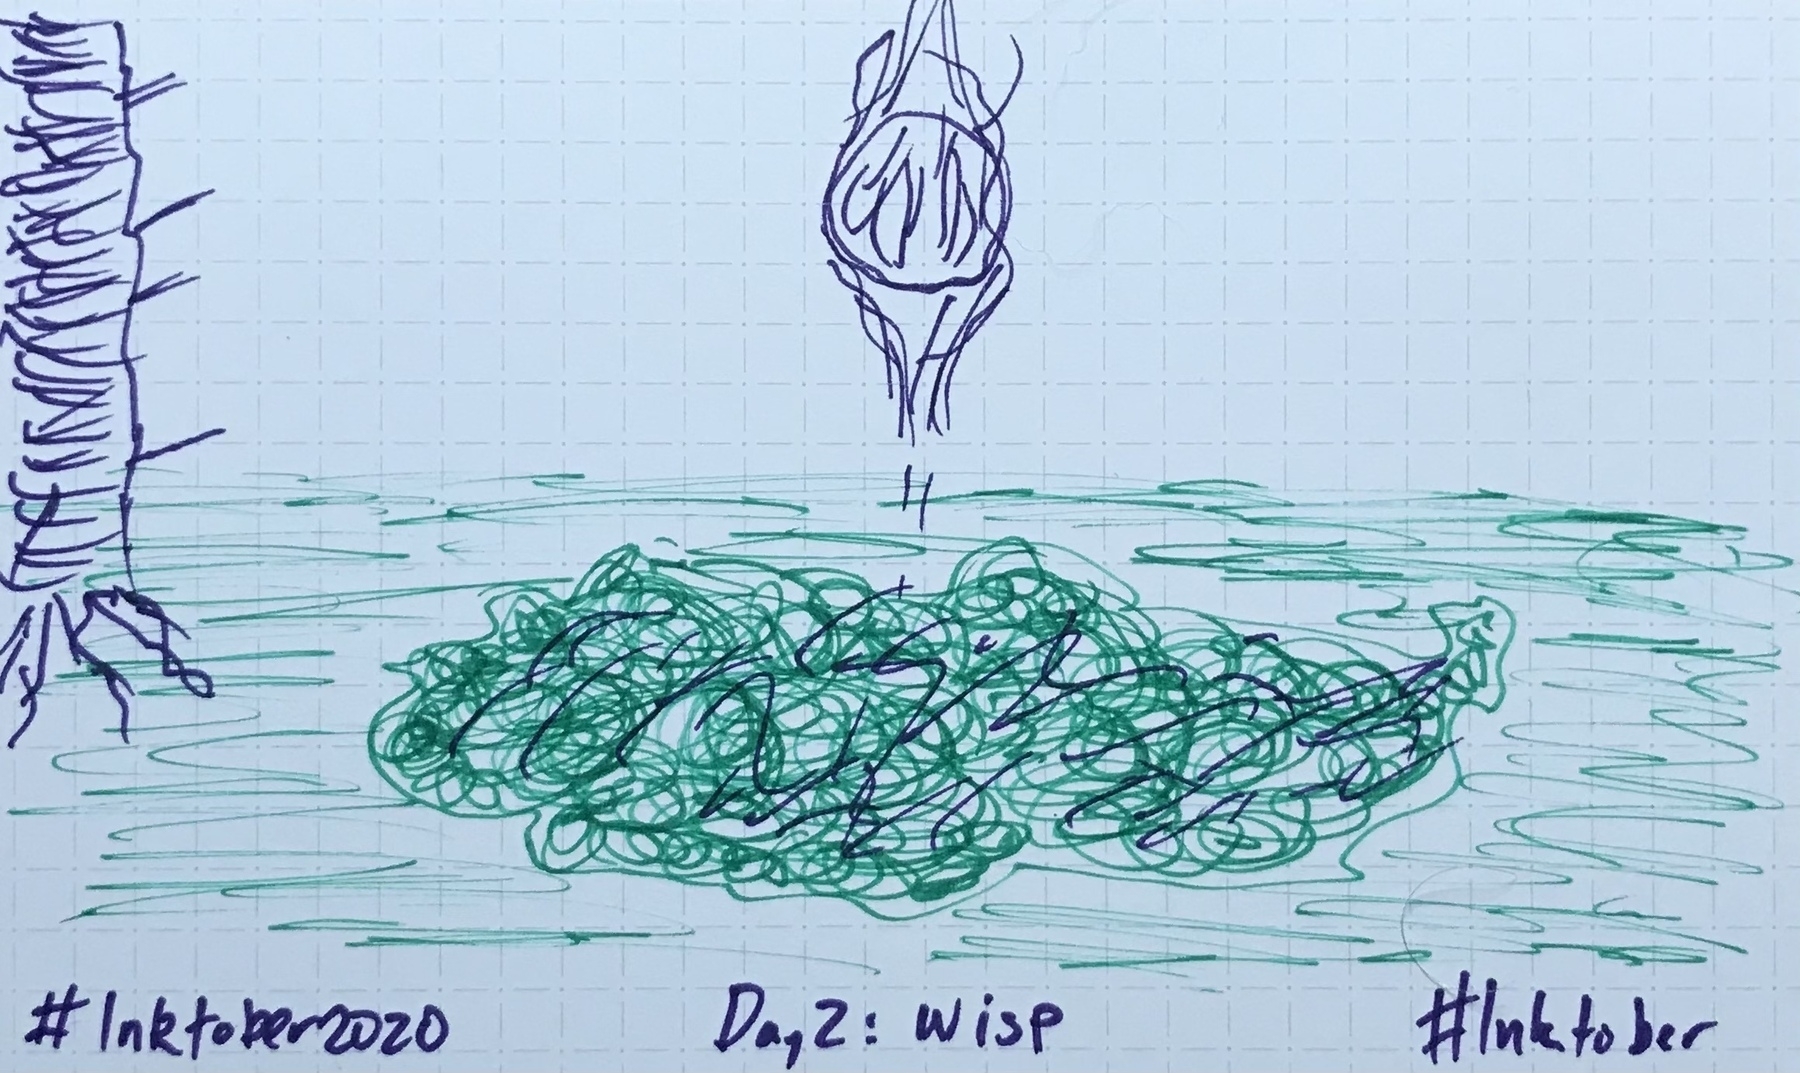 #Inktober2020 Day 2: Wisp #Inktober